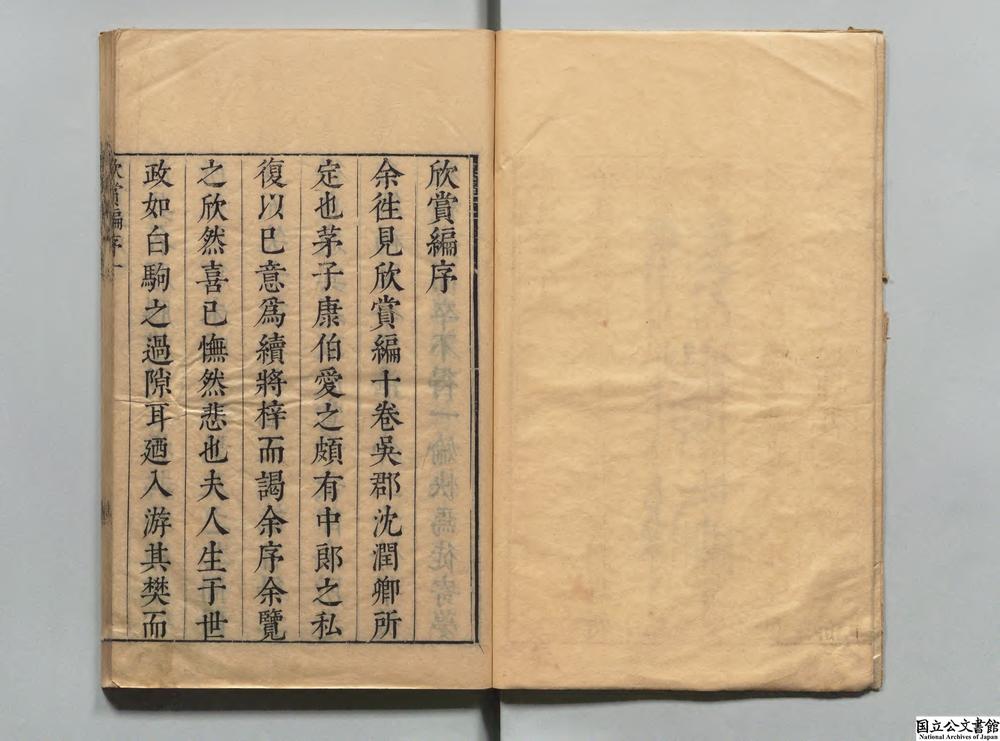 欣賞編序
余徃見欣賞編十卷吳郡沈潤卿所
定也茅子康伯愛之頗有中郎之私
復以巳意爲續將梓而謁余序余覽
之欣然喜已憮然悲也夫人生于世
政如白駒之過隙耳廼入游其樊而
欣賞編序一
国立公文書館
National Archives of Japan